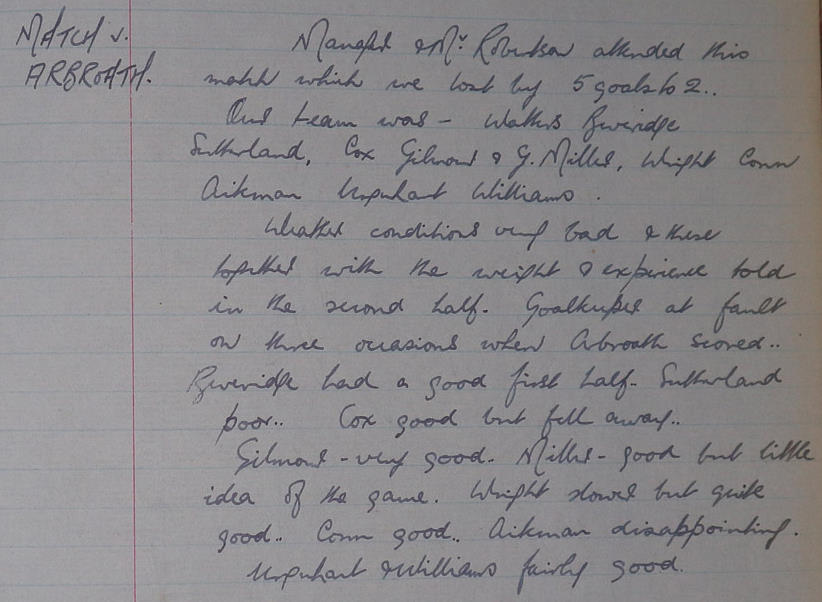 MATCH v.
ARBROATH.
Manager & Mr Robertson attended this
match which we lost by 5 goals to 2..
Our team was - Walters Beveridge
Sutherland, Cox Gilmour & G. Miller, Wright Conn
Aikman Urquhart Williams.
Weather conditions very bad & these
together with the weight & experience told
in the second half. Goalkeeper at fault
on three occasions when Arbroath scored..
Beveridge had a good first half. Sutherland
poor.. Cox good but fell away..
Gilmour - very good. Miller - good but little
idea of the game. Wright slower but quite
good.. Conn good.. Aikman disappointing.
Urquhart & Williams fairly good.